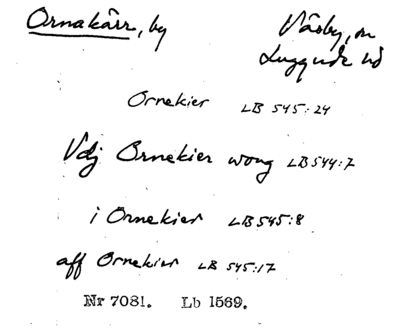 Ornakärr, by Väsby, sn
Luggude hd
Ornekier LB 545:24
Vdj Ornekier wong LB 544:7
i Ornekier LB 545:8
aff Ornekier LB 545:17
Nr 7081. Lb 1569.